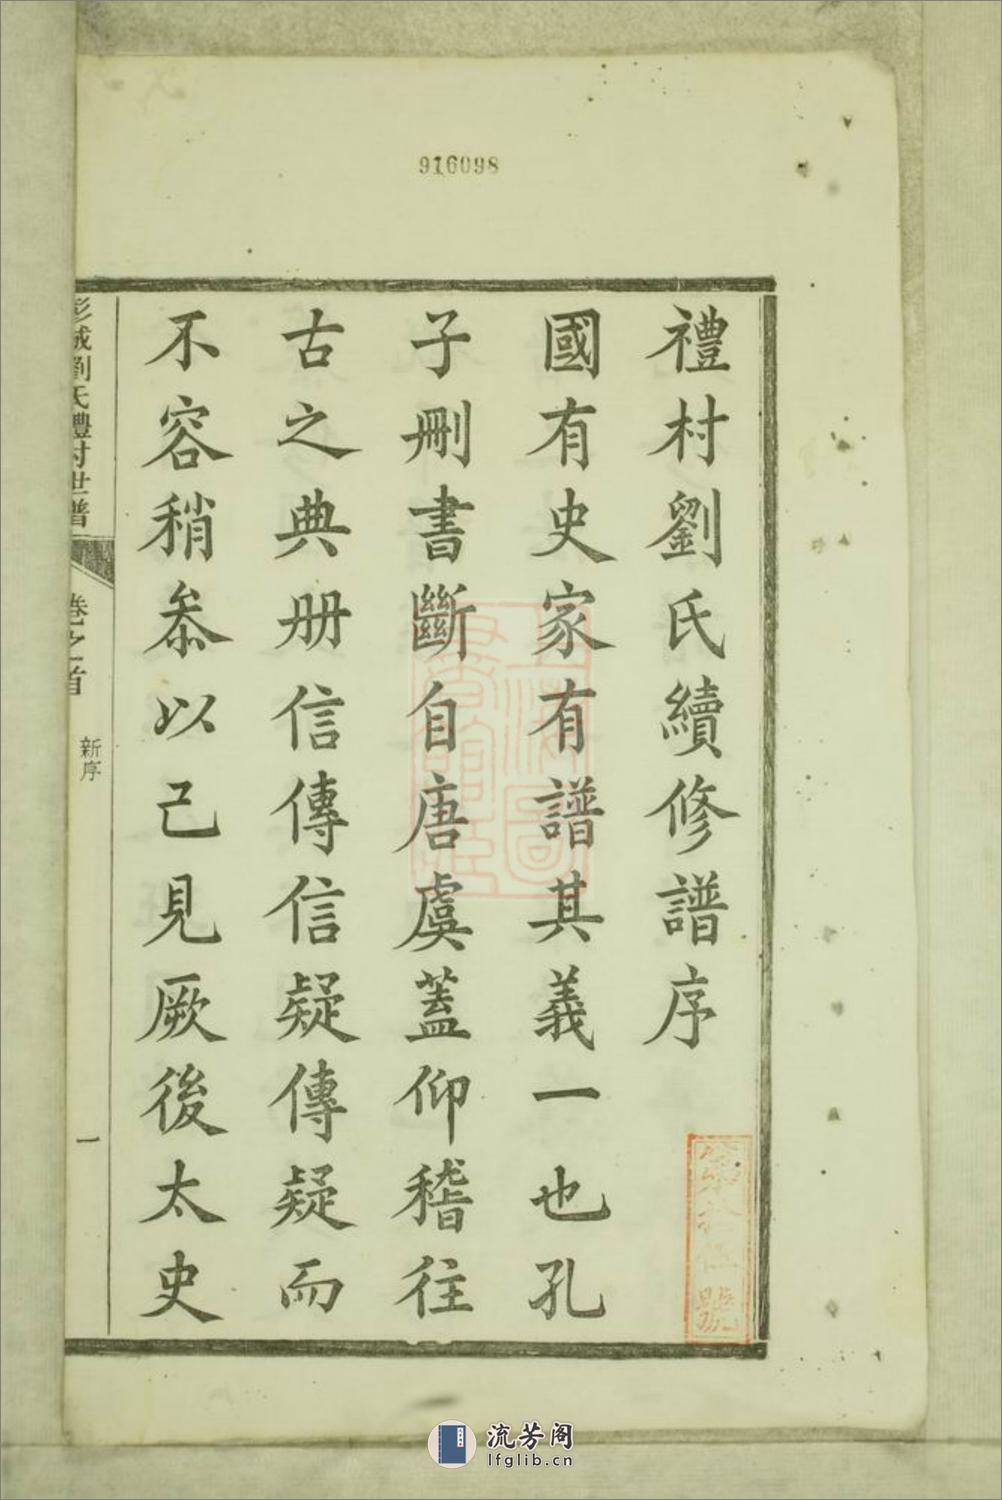 916098
禮村劉氏續修譜序
國有史家有譜其義一也孔
子刪書斷自唐虞蓋仰稽往
古之典册信傳信疑傳疑而
不容稍叅以己見厥後太史
彭城劉氏禮村世譜
卷之首
新序
一
第拾伍號
上海圖書館藏
流芳阁
lfglib.cn